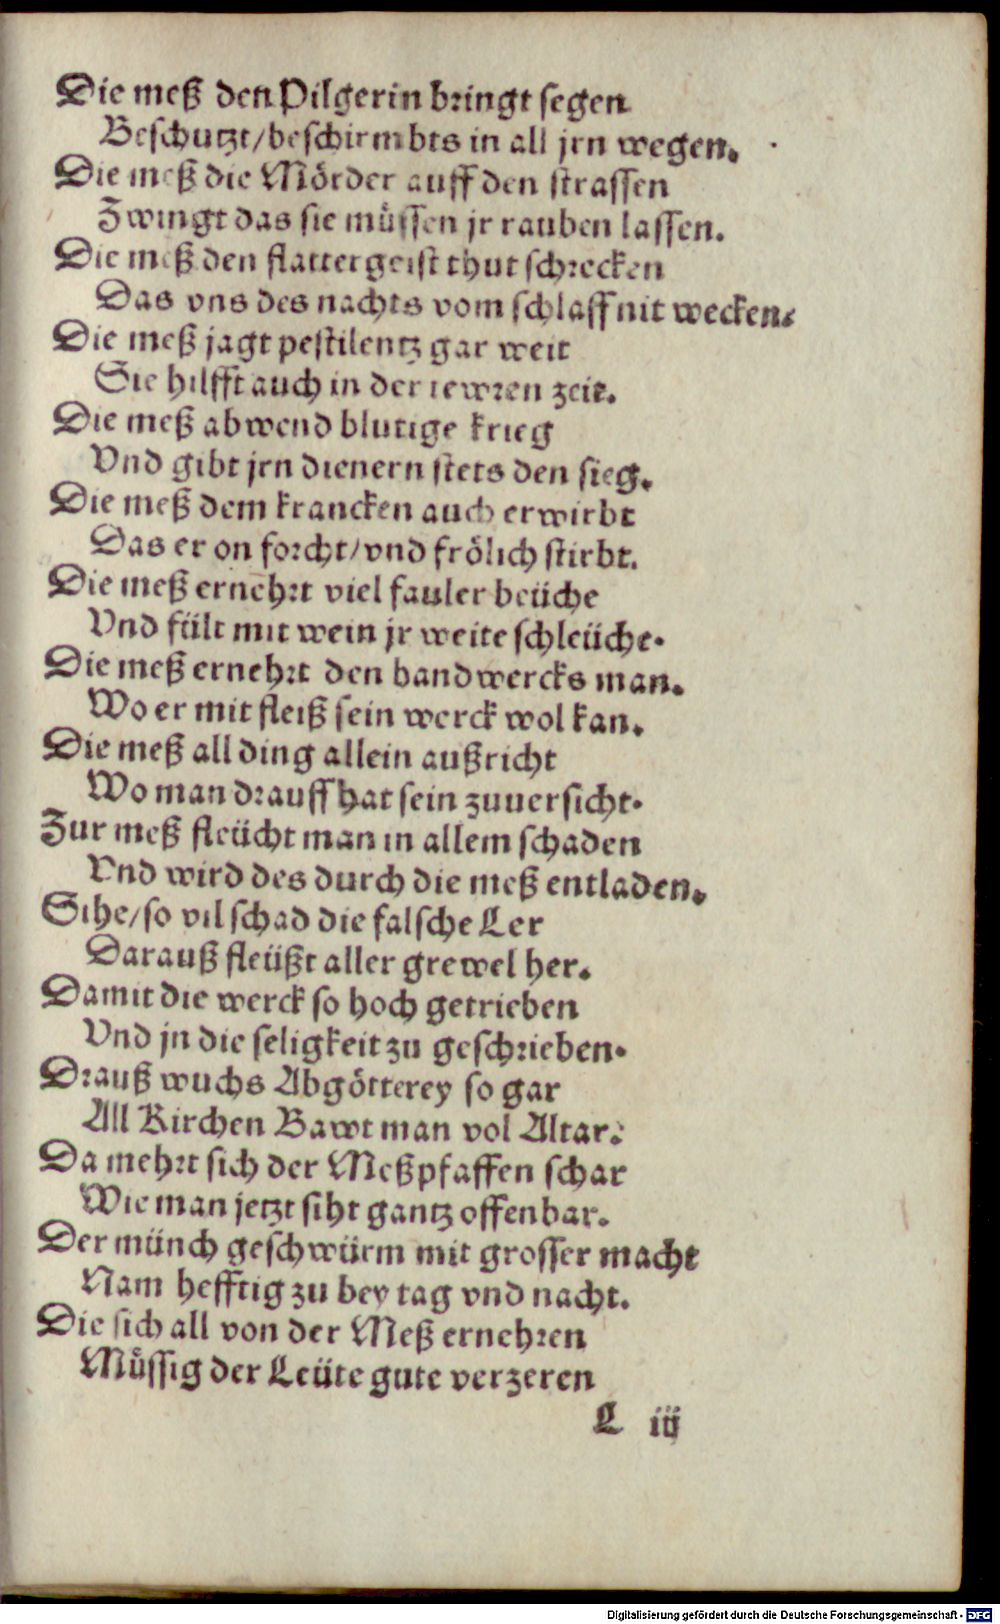 Die meß den Pilgerin bringt segen
Beschutzt/beschirmbts in all jrn wegen.
Die meß die Mörder auff den strassen
Zwingt das sie müssen jr rauben lassen.
Die meß den flattergeist thut schrecken
Das vns des nachts vom schlaff nit wecken.
Die meß jagt pestilentz gar weit
Sie hilfft auch in der tewren zeit.
Die meß abwend blutige krieg
Vnd gibt jrn dienern stets den sieg.
Die meß dem krancken auch erwirbt
Das er on forcht/vnd frölich stirbt.
Die meß ernehrt viel fauler beüche
Vnd fült mit wein jr weite schleüche.
Die meß ernehrt den handwercks man.
Wo er mit fleiß sein werck wol kan.
Die meß all ding allein außricht
Wo man drauff hat sein zuuersicht.
Zur meß fleücht man in allem schaden
Vnd wird des durch die meß entladen.
Sihe/so vil schad die falsche Ler
Darauß fleüßt aller grewel her.
Damit die werck so hoch getrieben
Vnd jn die seligkeit zu geschrieben.
Drauß wuchs Abgötterey so gar
All Kirchen Bawt man vol Altar.
Da mehrt sich der Meßpfaffen schar
Wie man jetzt siht gantz offenbar.
Der münch geschwürm mit grosser macht
Nam hefftig zu bey tag vnd nacht.
Die sich all von der Meß ernehren
Müssig der Leüte gute verzeren
L iij
Digitalisierung gefördert durch die Deutsche Forschungsgemeinschaft - DFG